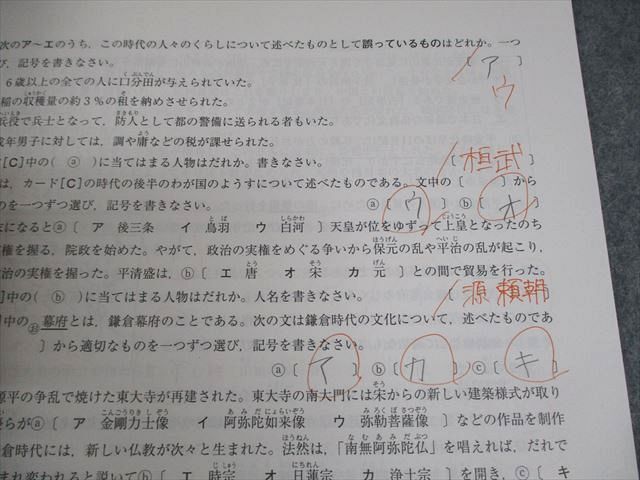 次のア～エのうち，この時代の人々のくらしについて述べたものとして誤っているものはどれか。一つ
び，記号を書きなさい。
〔ア〕
ウ
6歳以上の全ての人に口分田が与えられていた。
稲の収穫量の約3％の租を納めさせられた。
兵役で兵士となって，防人として都の警備に送られる者もいた。
成年男子に対しては，調や庸などの税が課せられた。
[C]中の（ ⓐ ）に当てはまる人物はだれか。書きなさい。
〔桓武〕
は，カード[C]の時代の後半のわが国のようすについて述べたものである。文中の〔 〕から
のを一つずつ選び，記号を書きなさい。
ⓐ〔ウ〕 ⓑ〔オ〕
になるとⓐ〔 ア 後三条 イ 鳥羽 ウ 白河 〕天皇が位をゆずって上皇となったのち
実権を握る，院政を始めた。やがて，政治の実権をめぐる争いから保元の乱や平治の乱が起こり，
治の実権を握った。平清盛は，ⓑ〔 エ 唐 オ 宋 カ 元 〕との間で貿易を行った。
]中の（ ⓑ ）に当てはまる人物はだれか。人名を書きなさい。
〔源頼朝〕
中の幕府とは，鎌倉幕府のことである。次の文は鎌倉時代の文化について，述べたものであ
〕から適切なものを一つずつ選び，記号を書きなさい。
ⓐ〔ア〕 ⓑ〔カ〕 ⓒ〔キ〕
源平の争乱で焼けた東大寺が再建された。東大寺の南大門には宋からの新しい建築様式が取り
らがⓐ〔 ア 金剛力士像 イ 阿弥陀如来像 ウ 弥勒菩薩像 〕などの作品を制作
倉時代には，新しい仏教が次々と生まれた。法然は，「南無阿弥陀仏」を唱えれば，だれで
まれ変われると説いてⓑ〔 エ 時宗 オ 日蓮宗 カ 浄土宗 〕を開き，ⓒ〔 キ